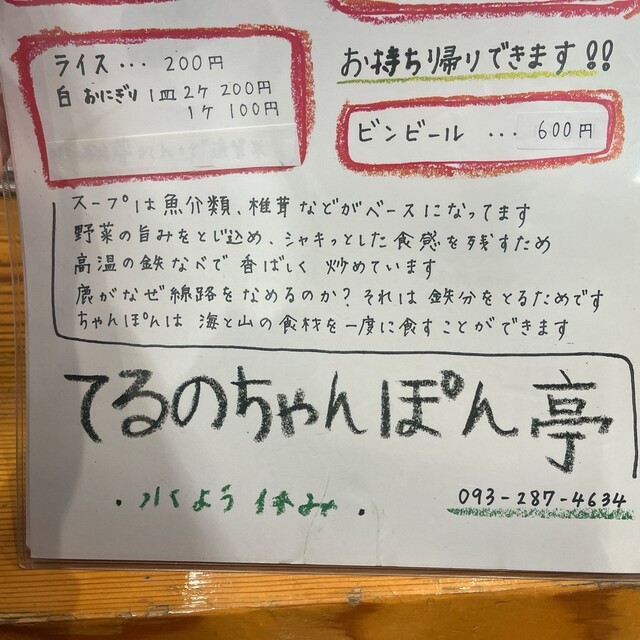 ライス・・・200円
お持ち帰りできます!!
白おにぎり 1皿2ケ 200円
1ケ 100円
ビンビール ・・・ 600円
スープは魚介類、椎茸などがベースになってます
野菜の旨みをとじ込め、シャキッとした食感を残すため
高温の鉄なべで香ばしく炒めています
鹿がなぜ線路をなめるのか?それは鉄分をとるためです
ちゃんぽんは海と山の食材を一度に食すことができます
てるのちゃんぽん亭
・水くよう休み・
093-287-4634